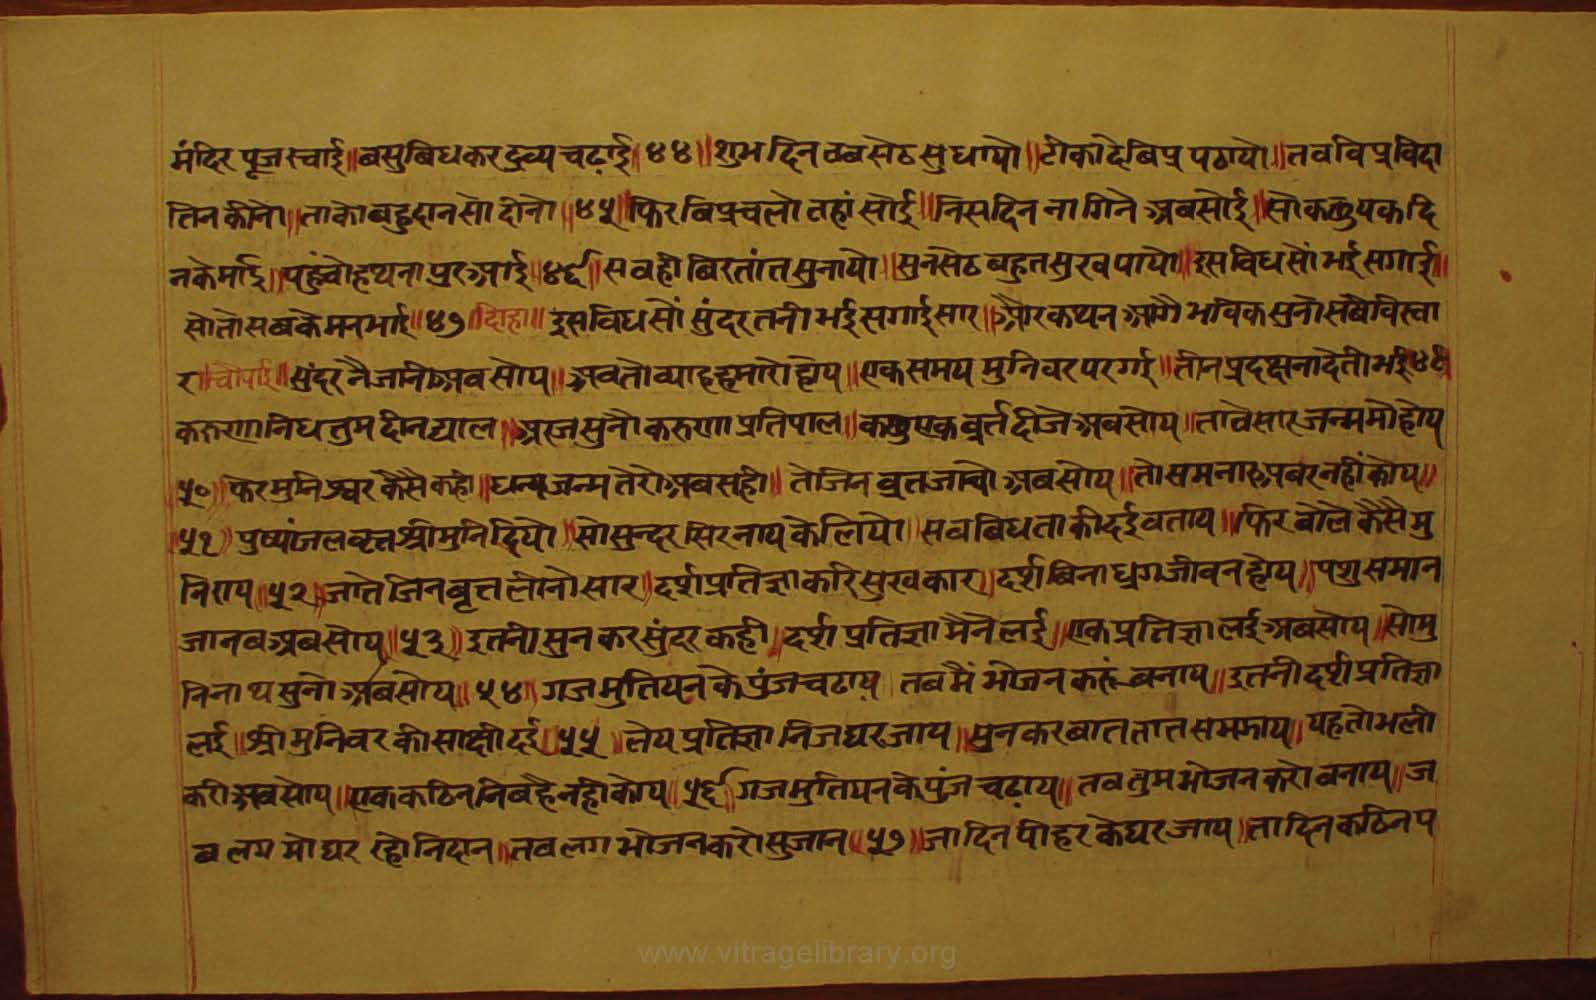 मंदिर पूज रचाई॥ बसुबिधकर द्रव्य चढ़ाई॥ ४४॥ शुभ दिन तब सेठ सुधायो॥ टीका दे बिप्र पठायो॥ तब विप्र विदा
तिन कीनो॥ ताको बहुदान सो दीनो॥ ४५॥ फिर बिप्र चलो तहां सोई॥ निस दिन ना गिने अब सोई॥ सो कछुयक दि
न के माई॥ पहुंचो हथनापुर आई॥ ४६॥ सबही बिरतांत सुनायो॥ सुन सेठ बहुत सुख पायो॥ इस विध सों भई सगाई॥
सो तो सब के मन भाई॥ ४७॥ दोहा॥ इस विध सों सुंदर तनी भई सगाई सार॥ और कथन आगै भविक सुनो सबै विस्ता
र॥ चौपई॥ सुंदर नै जानी अब सोय॥ अब तो व्याह हमारो होय॥ एक समय मुनिवर पर गई॥ तीन प्रदक्षना देती भई ४९
करुणानिध तुम दीन द्याल॥ अरज सुनौ करुणा प्रतिपाल॥ कछु एक बर्त दीजे अब सोय॥ तातै सार जन्म मो होय
५०॥ फिर मुनिश्वर कैसै कही॥ धन्य जन्म तेरो अब सही॥ ते जिन व्रत जाचो अब सोय॥ तो सम नार अवर नहीं कोय॥
५१॥ पुष्पांजल वृत्त श्री मुनि दियो॥ सो सुन्दर सिर नाय के लियो॥ सब बिध ताकी दई बताय॥ फिर बोले कैसै मु
निराय॥ ५२॥ जाते जिन बृत्त लीनो सार॥ दर्श प्रतिज्ञा करि सुखकार॥ दर्श बिना ध्रग जीवन होय॥ पशु समान
जानव अब सोय॥ ५३॥ इतनी सुन कर सुंदर कही॥ दर्श प्रतिज्ञा मैने लई॥ एक प्रतिज्ञा लई अब सोय॥ सो मु
निनाथ सुनो अब सोय॥ ५४॥ गज मुतियन के पुंज चढाय॥ तब मैं भोजन करूं बनाय॥ इतनी दर्श प्रतिज्ञा
लई॥ श्री मुनिवर की साक्षी दई॥ ५५॥ लेय प्रतिज्ञा निज घर जाय॥ सुन कर बात तात समझाय॥ यह तो भली
करी अब सोय॥ एक कठिन निबहै नही कोय॥ ५६॥ गज मुतियन के पुंज चढ़ाय॥ तब तुम भोजन करो बनाय॥ ज
ब लग मो घर रहो निदान॥ तब लग भोजन करो सुजान॥ ५७॥ जा दिन पीहर के घर जाय॥ ता दिन कठिन प
www.vitragelibrary.org